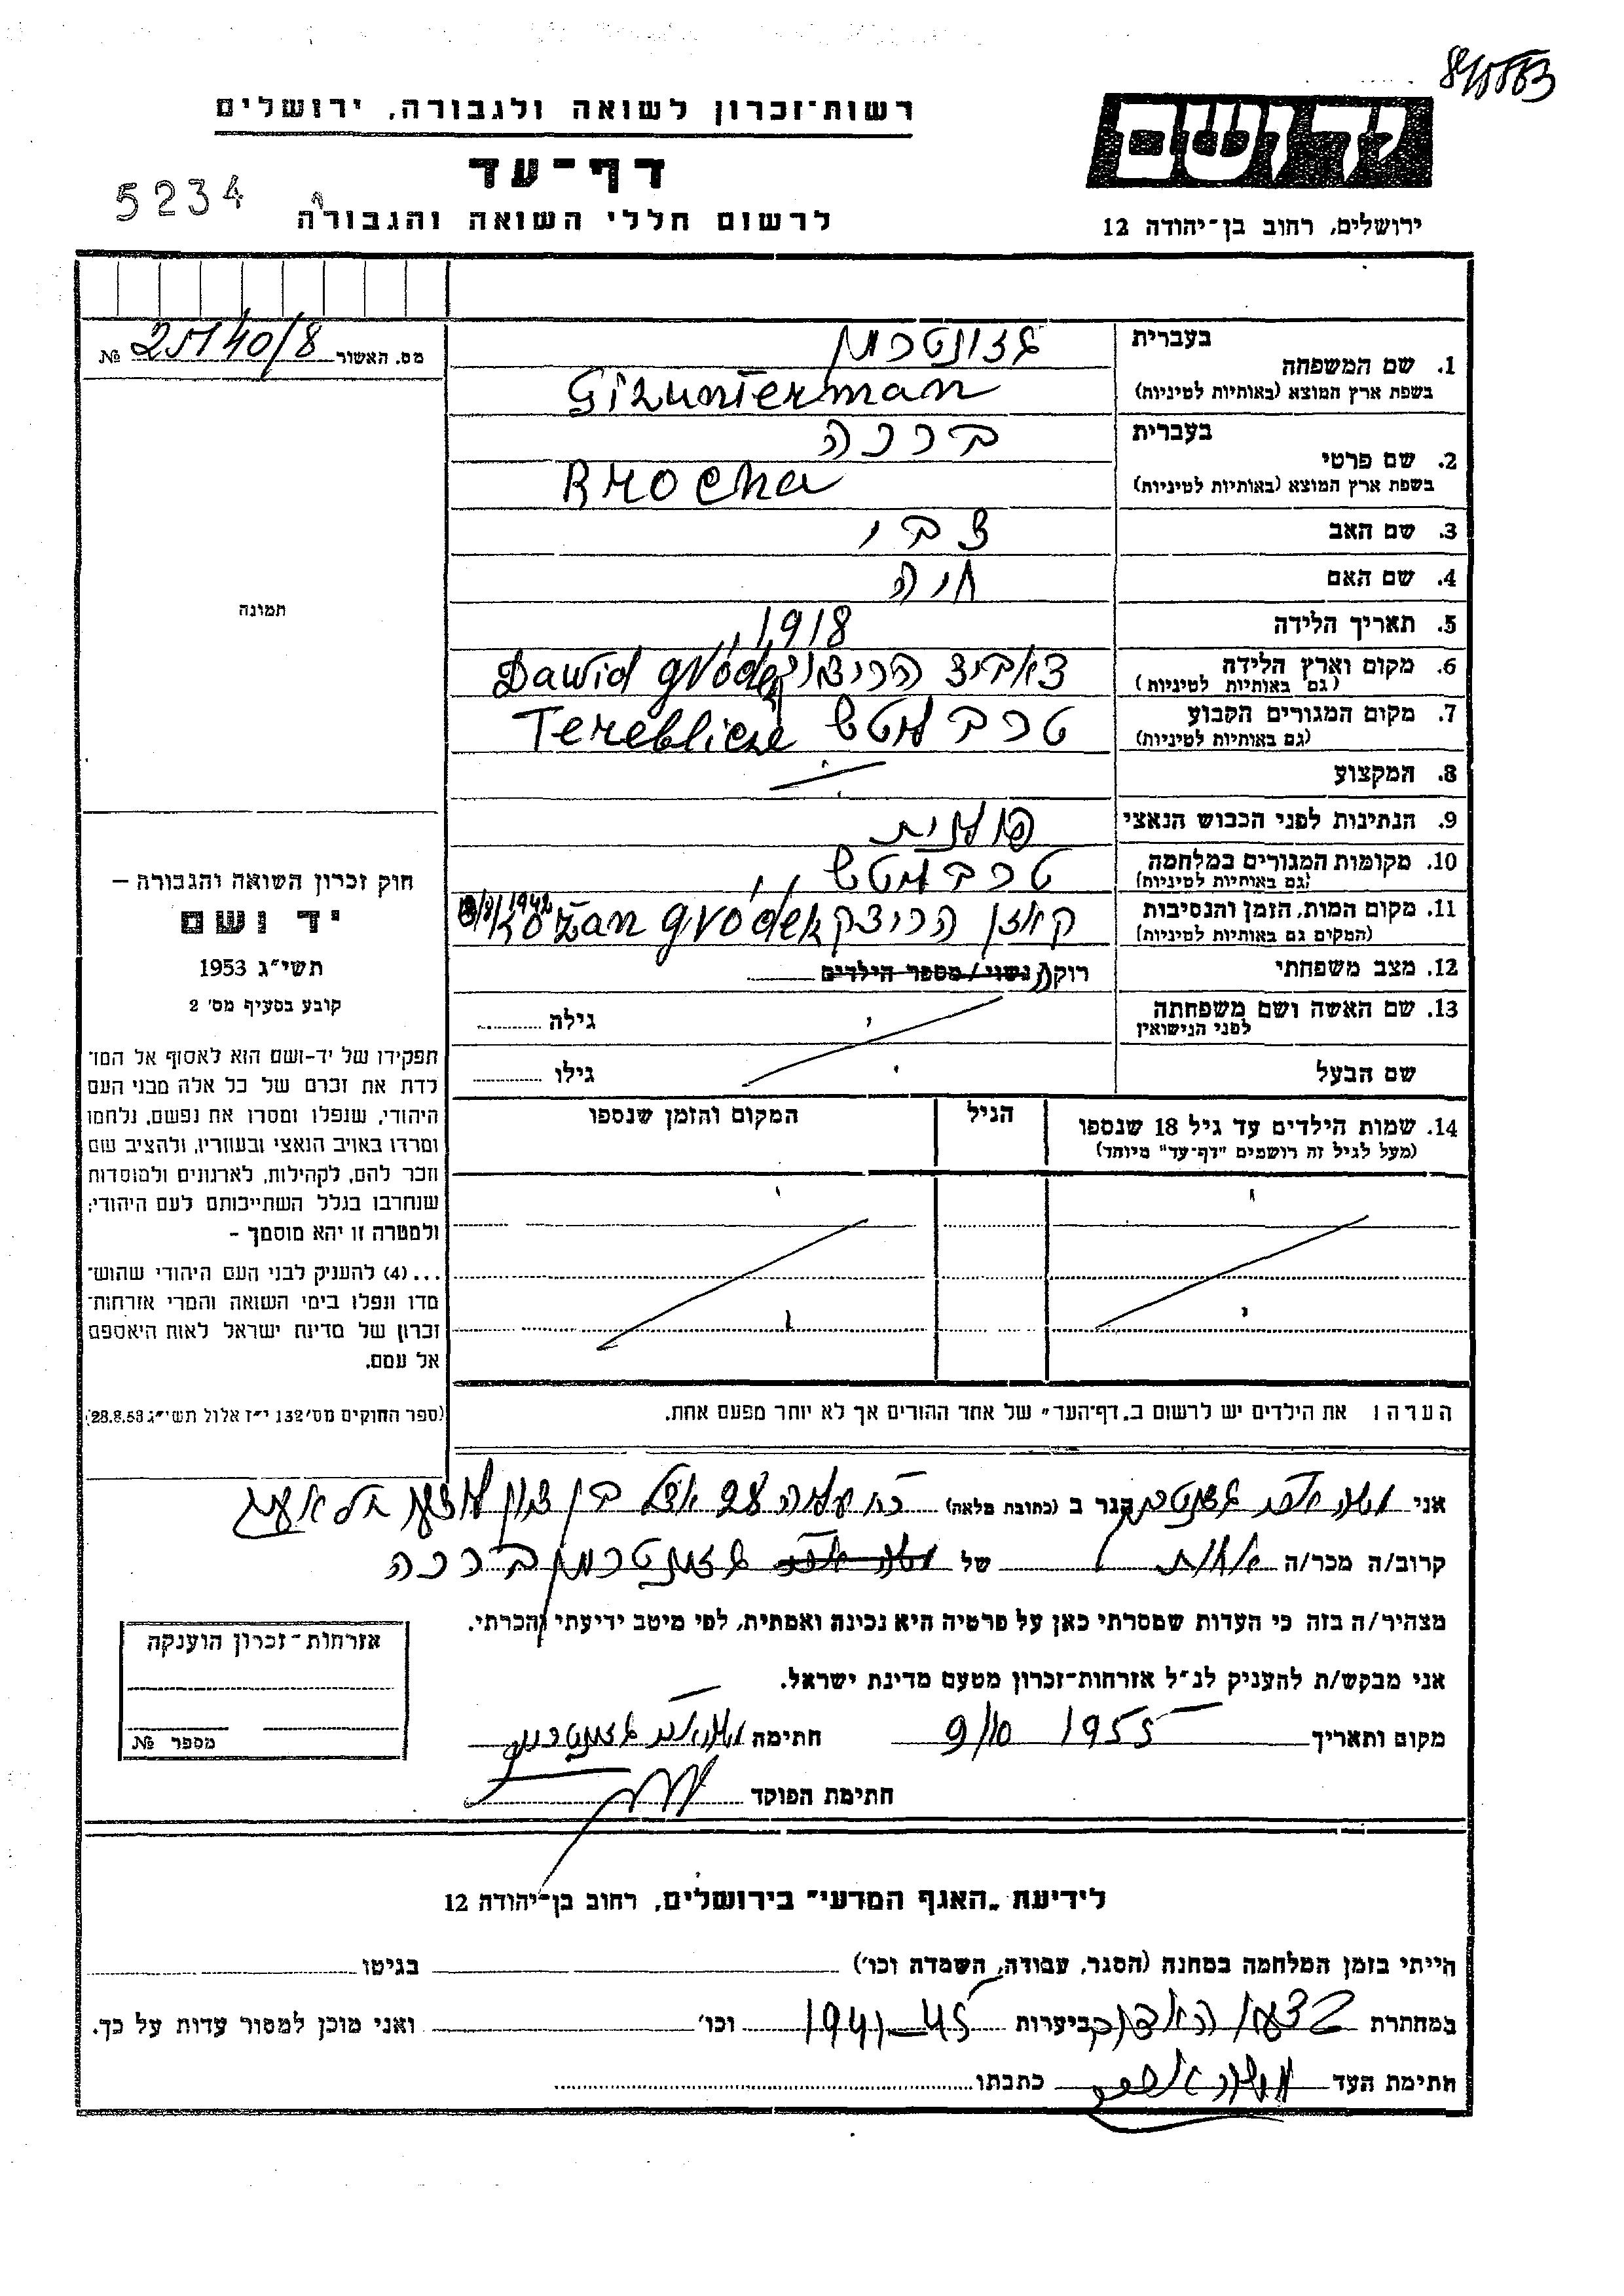 רשות־זכרון לשואה ולגבורה, ירושלים
דף־עד
לרשום חללי השואה והגבורה
5234
יד ושם
ירושלים, רחוב בן־יהודה 12
מס. האשור № 25140/8
1. שם המשפחה
בעברית
גזונטרמן
בשפת ארץ המוצא (באותיות לטיניות)
Gizunterman
2. שם פרטי
בעברית
ברכה
בשפת ארץ המוצא (באותיות לטיניות)
Brocha
3. שם האב צבי
4. שם האם חיה
5. תאריך הלידה 1918
6. מקום וארץ הלידה
(גם באותיות לטיניות)
Dawid gródek
7. מקום המגורים הקבוע
(גם באותיות לטיניות)
Terebliczé
8. המקצוע
9. הנתינות לפני הכבוש הנאצי פולנית
10. מקומות המגורים במלחמה
(גם באותיות לטיניות)
11. מקום המות, הזמן והנסיבות
(המקום גם באותיות לטיניות)
Kożan gródek
12. מצב משפחתי רוק/נשוי/מספר הילדים
13. שם האשה ושם משפחתה גילה
לפני הנישואין
שם הבעל גילו
14. שמות הילדים עד גיל 18 שנספו
(מעל לגיל זה רושמים "דף־עד" מיוחד)
הגיל
המקום והזמן שנספו
הערה: את הילדים יש לרשום ב„דף־העד" של אחד ההורים אך לא יותר מפעם אחת.
תמונה
חוק זכרון השואה והגבורה –
יד ושם
תשי"ג 1953
קובע בסעיף מס' 2
תפקידו של יד-ושם הוא לאסוף אל המו־
לדת את זכרם של כל אלה מבני העם
היהודי, שנפלו ומסרו את נפשם, נלחמו
ומרדו באויב הנאצי ובעוזריו, ולהציב שם
וזכר להם, לקהילות, לארגונים ולמוסדות
שנחרבו בגלל השתייכותם לעם היהודי;
ולמטרה זו יהא מוסמך –
...(4) להעניק לבני העם היהודי שהוש־
מדו ונפלו בימי השואה והמרי אזרחות־
זכרון של מדינת ישראל לאות היאספם
אל עמם.
(ספר החוקים מס' 132 י"ז אלול תשי"ג 28.8.53)
אני הגר ב (כתובת מלאה)
קרוב/ה מכר/ה אחות של גזונטרמן ברכה
מצהיר/ה בזה כי העדות שמסרתי כאן על פרטיה היא נכונה ואמתית, לפי מיטב ידיעתי והכרתי.
אני מבקש/ת להעניק לנ"ל אזרחות־זכרון מטעם מדינת ישראל.
מקום ותאריך 9/10 1955 חתימה
חתימת הפוקד
אזרחות־זכרון הוענקה
מספר №
לידיעת „האגף המדעי" בירושלים, רחוב בן־יהודה 12
הייתי בזמן המלחמה במחנה (הסגר, עבודה, השמדה וכו') בגיטו
במחתרת ביערות 1941-45 וכו' ואני מוכן למסור עדות על כך.
חתימת העד כתבתו